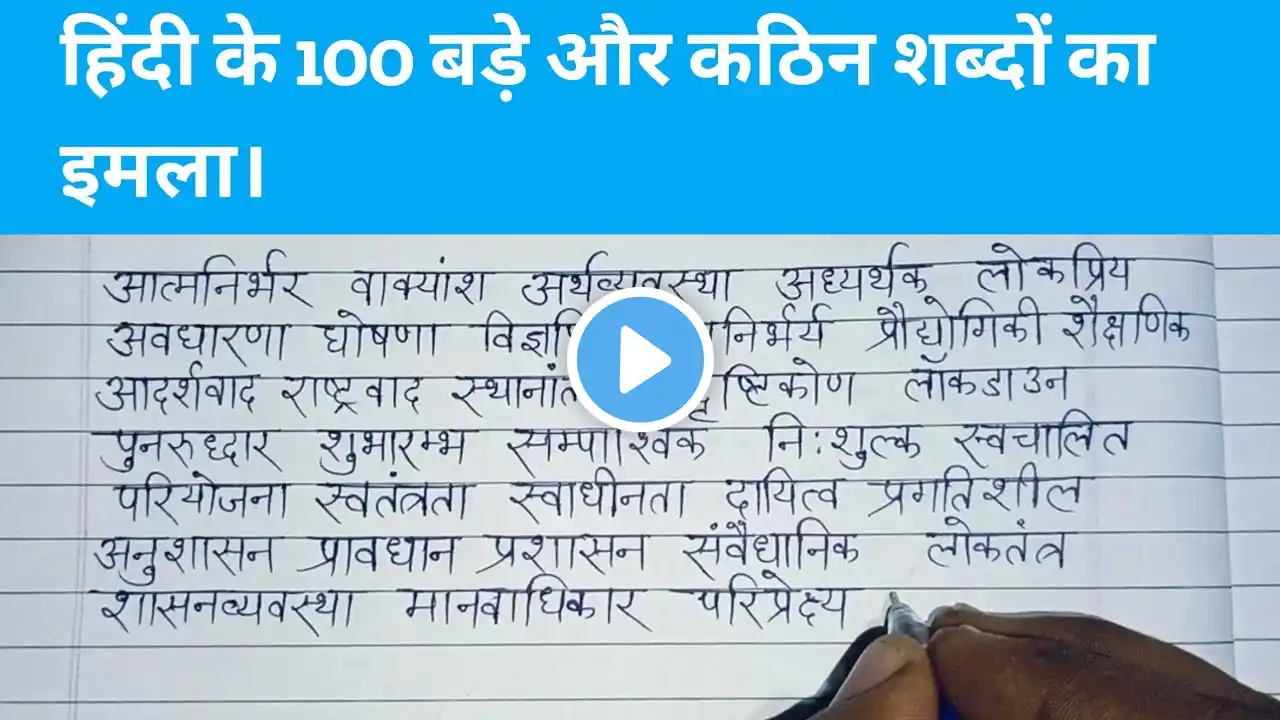 हिंदी के 100 बड़े और कठिन शब्दों का
इमला।
आत्मनिर्भर वाक्यांश अर्थव्यवस्था अध्यर्थक लोकप्रिय
अवधारणा घोषणा प्रौद्योगिकी शैक्षणिक
आदर्शवाद राष्ट्रवाद लॉकडाउन
पुनरुद्धार शुभारम्भ नि:शुल्क स्वचालित
परियोजना स्वतंत्रता स्वाधीनता दायित्व प्रगतिशील
अनुशासन प्रावधान प्रशासन संवैधानिक लोकतंत्र
शासनव्यवस्था मानवाधिकार परिप्रेक्ष्य